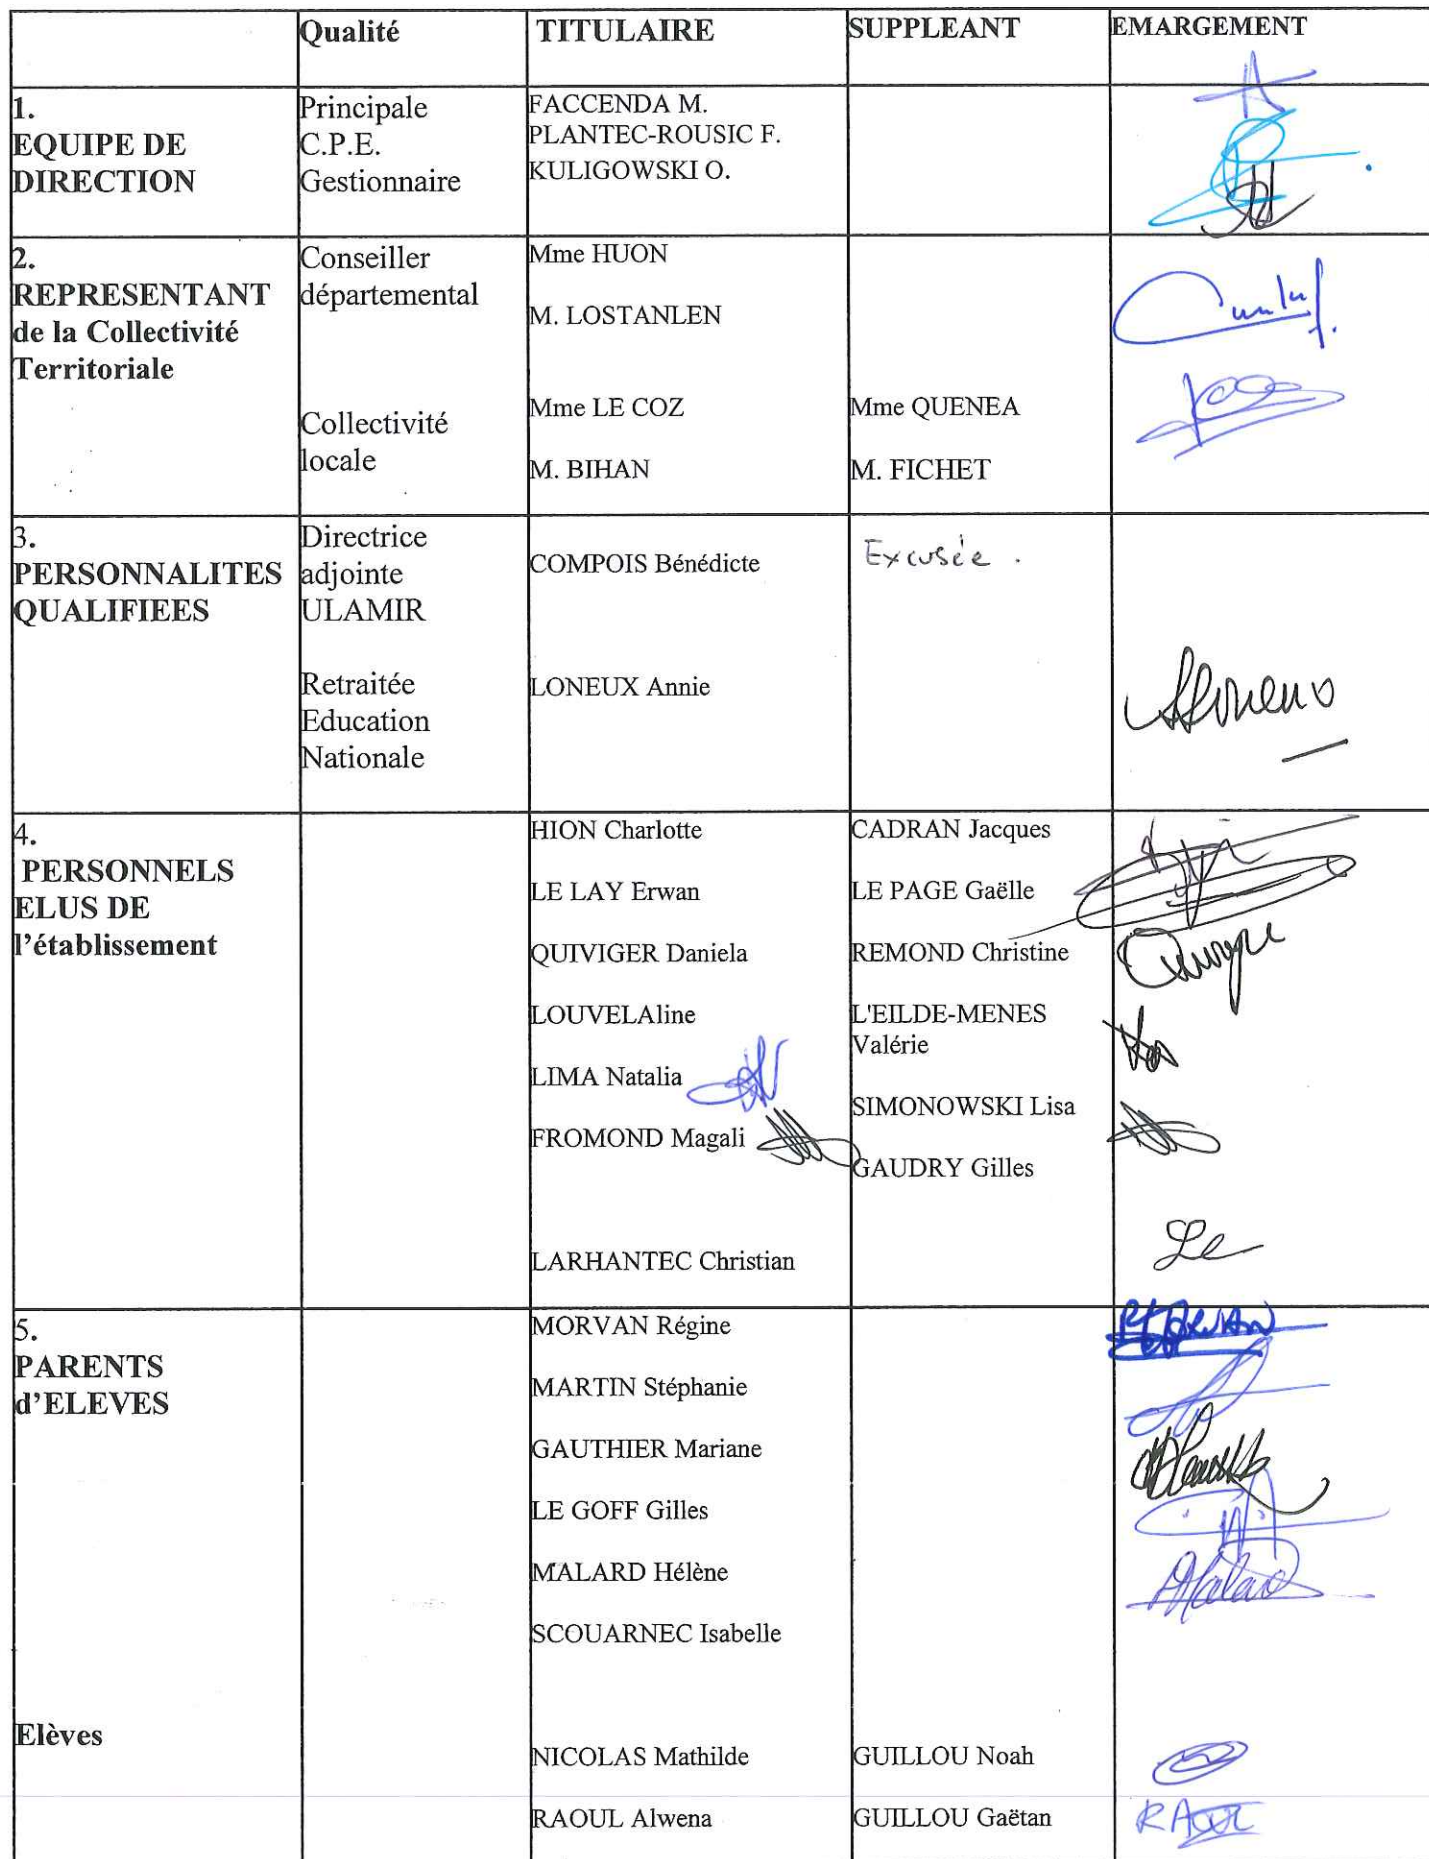 Qualité TITULAIRE SUPPLEANT EMARGEMENT
1.
EQUIPE DE
DIRECTION
Principale
C.P.E.
Gestionnaire
FACCENDA M.
PLANTEC-ROUSIC F.
KULIGOWSKI O.
2.
REPRESENTANT
de la Collectivité
Territoriale
Conseiller
départemental
Collectivité
locale
Mme HUON
M. LOSTANLEN
Mme LE COZ
M. BIHAN
Mme QUENEA
M. FICHET
3.
PERSONNALITES
QUALIFIEES
Directrice
adjointe
ULAMIR
Retraitée
Education
Nationale
COMPOIS Bénédicte
LONEUX Annie
Excusée .
4.
PERSONNELS
ELUS DE
l'établissement
HION Charlotte
LE LAY Erwan
QUIVIGER Daniela
LOUVELAline
LIMA Natalia
FROMOND Magali
LARHANTEC Christian
CADRAN Jacques
LE PAGE Gaëlle
REMOND Christine
L'EILDE-MENES
Valérie
SIMONOWSKI Lisa
GAUDRY Gilles
5.
PARENTS
d'ELEVES
MORVAN Régine
MARTIN Stéphanie
GAUTHIER Mariane
LE GOFF Gilles
MALARD Hélène
SCOUARNEC Isabelle
Malard
Elèves
NICOLAS Mathilde
RAOUL Alwena
GUILLOU Noah
GUILLOU Gaëtan
RAOUL